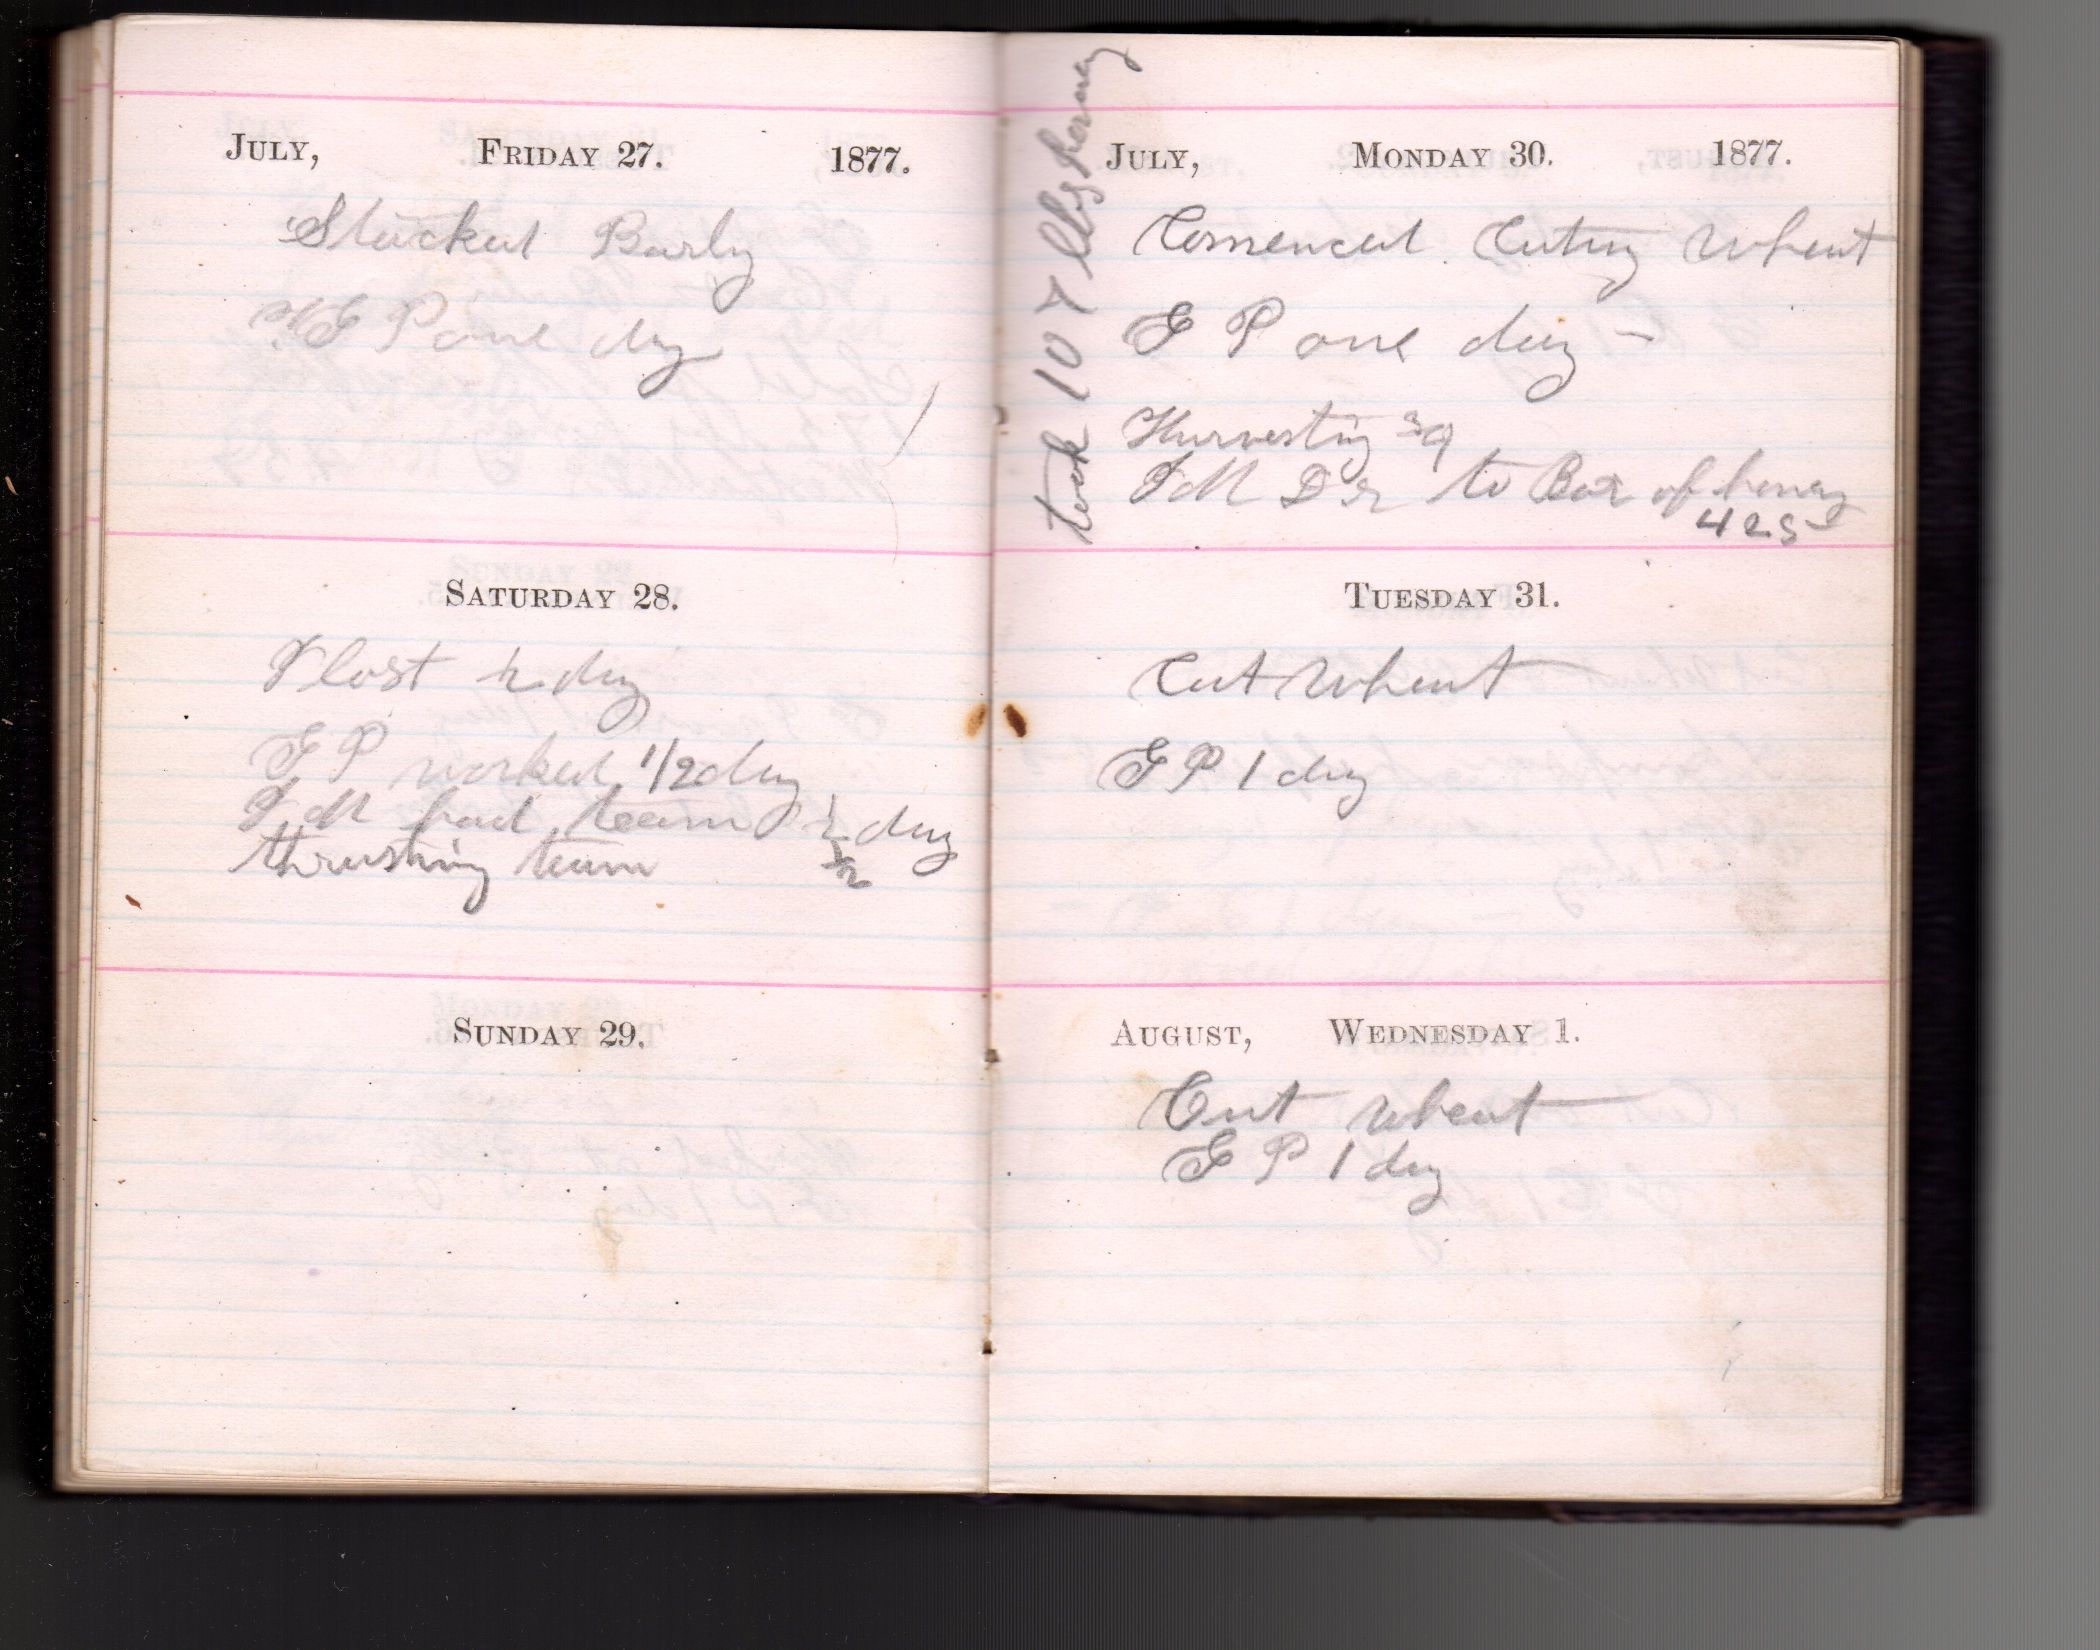 JULY, FRIDAY 27. 1877.
Stacked Barly
E P one day
SATURDAY 28.
I lost 1/2 day
E P worked 1/2 day
I M had team 1/2 day
thrashing team 1/2
SUNDAY 29.
took 107 lbs honey
JULY, MONDAY 30. 1877.
Comenced Cuting Wheat
E P one day
Harvesting
I M Dr to Box of honey
425
TUESDAY 31.
Cut Wheat
E P 1 day
AUGUST, WEDNESDAY 1.
Cut wheat
E P 1 day